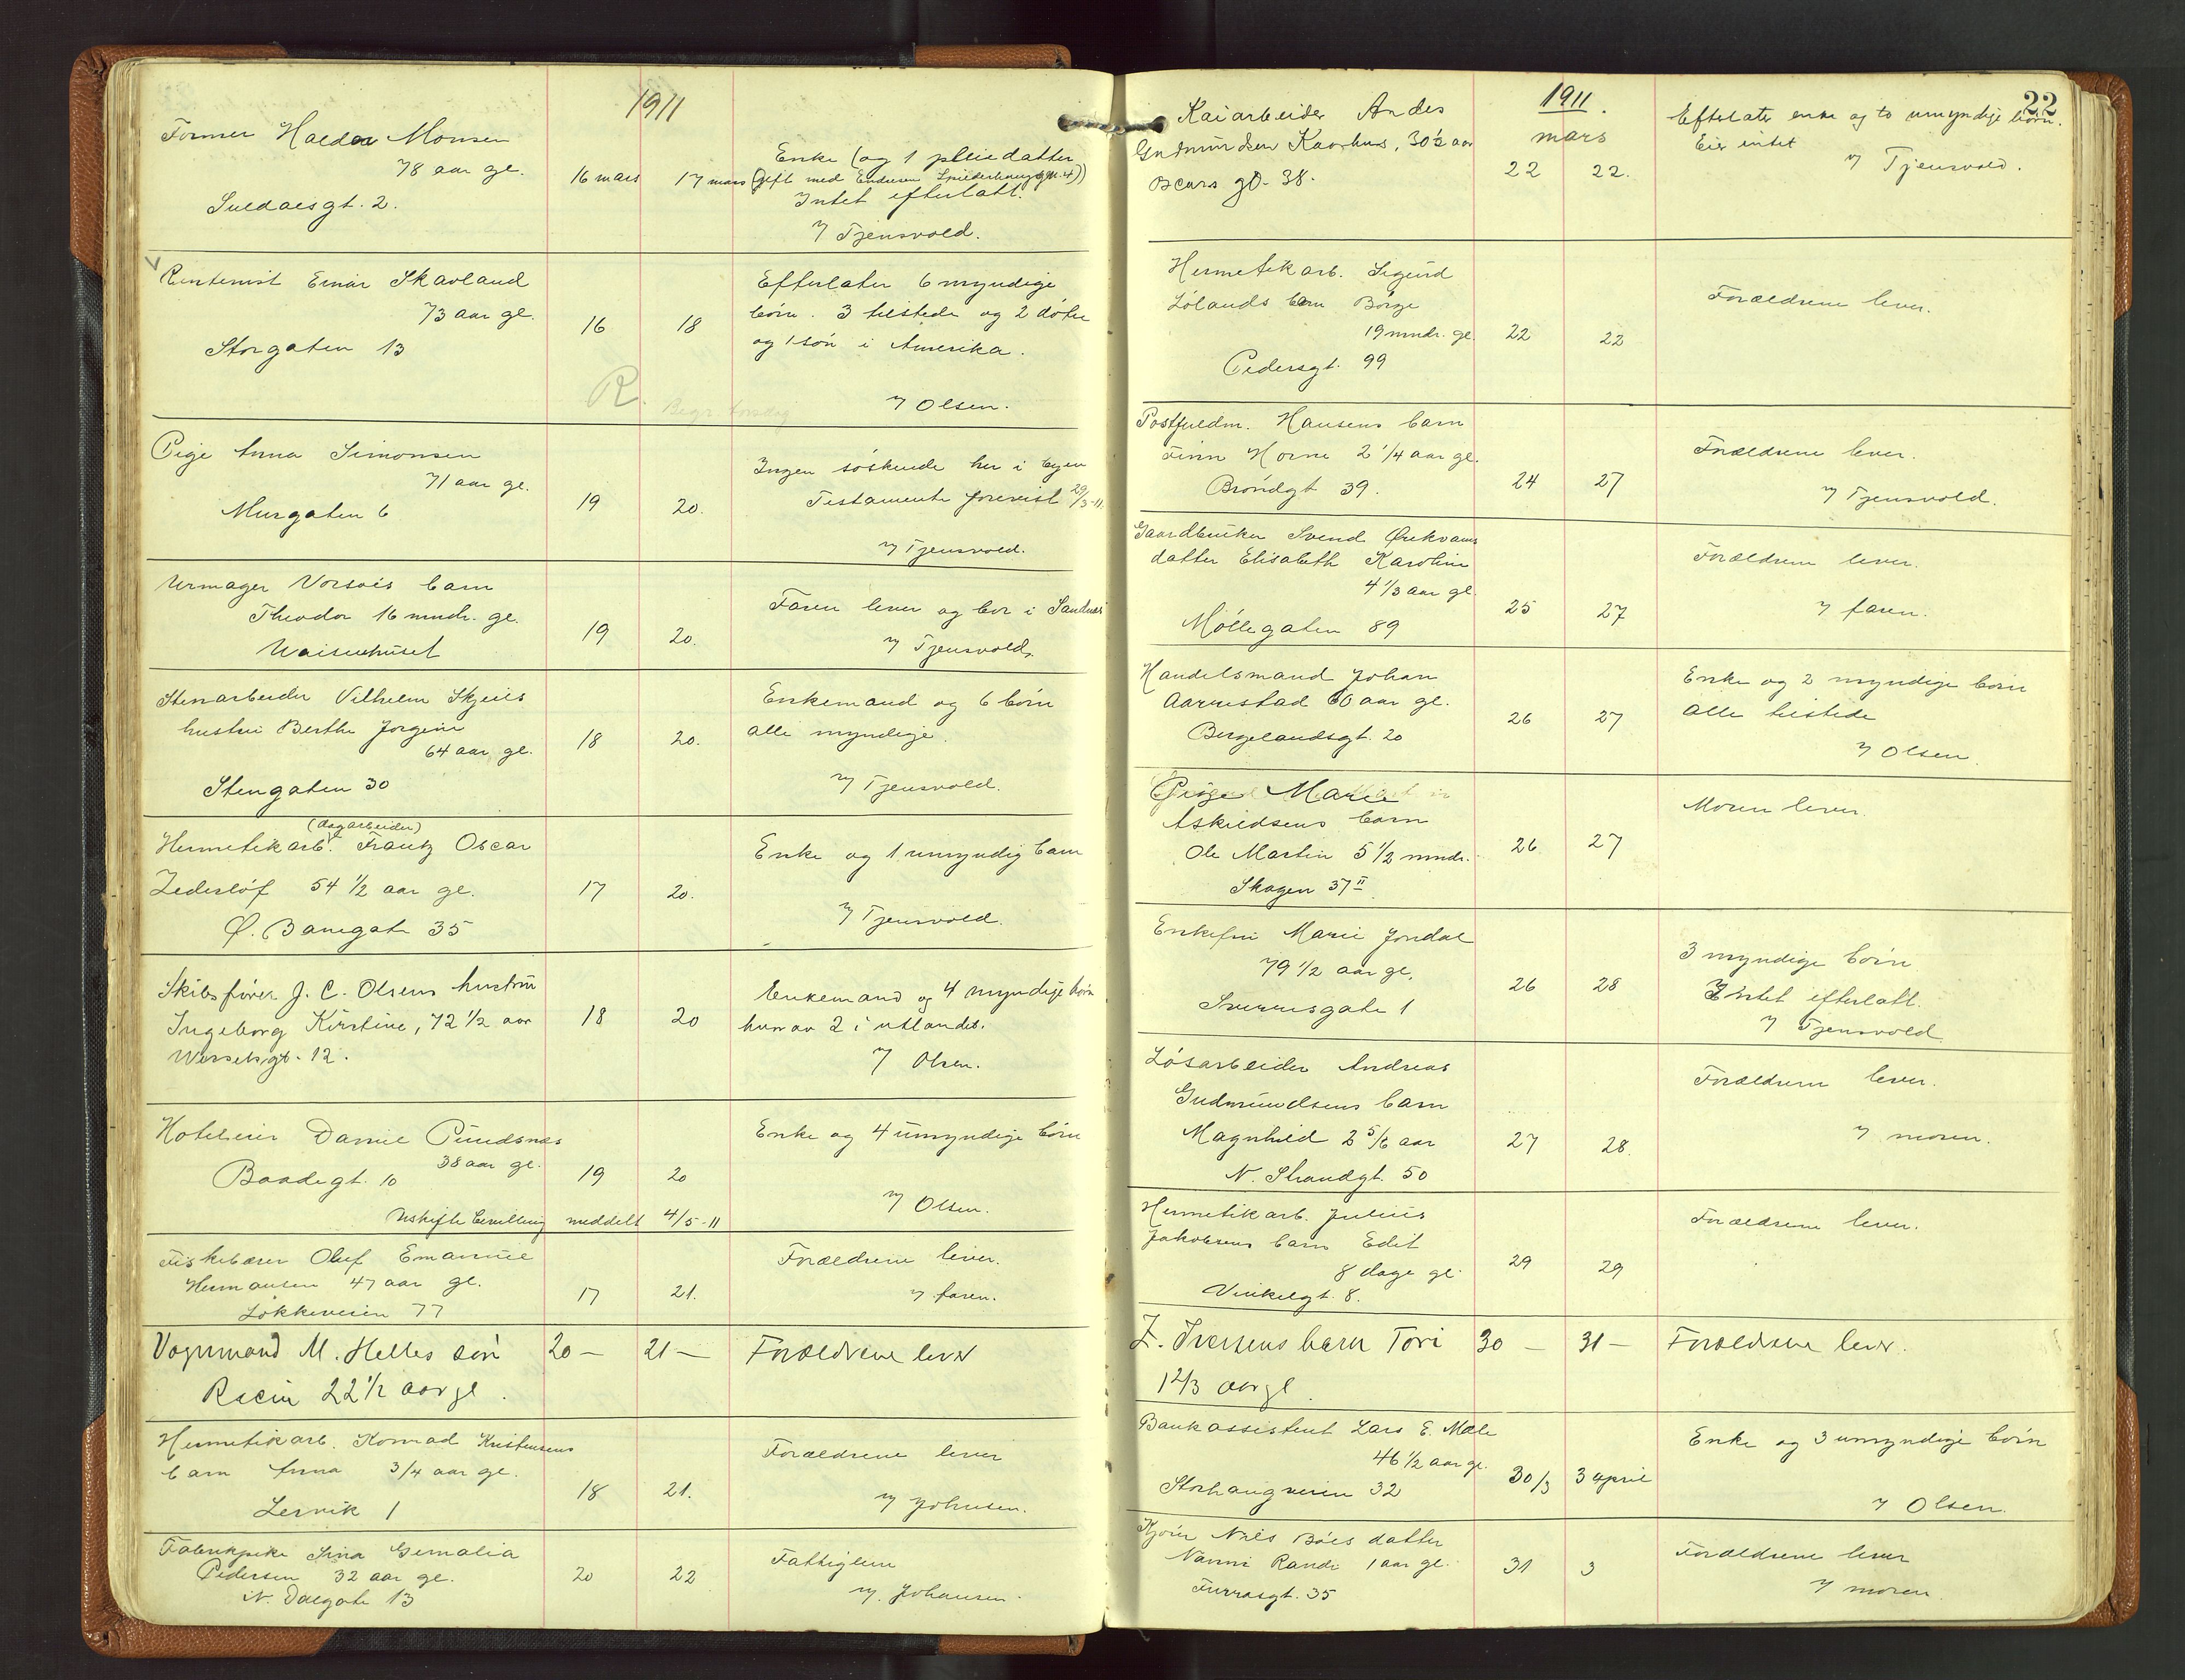 1911
Former Haldor Monsen
78 aar gl.
Suldalsgt. 2.
16 mars
17 mars
Enke (og 1 pleiedatter
(gift med Endresen
Intet efterlatt.
Tjensvold.
Rentenist Einar Skavland
73 aar gl.
Storgaten 13
16
18
R.
Begr. torsdag
Efterlater 6 myndige
børn. 3 tilstede og 2 døtre
og 1 søn i Amerika.
Olsen.
Pige Anna Simonsen
71 aar gl.
Murgaten 6
19
20.
Ingen søskende her i byen
Testamente forevist 29/3-11.
Tjensvold.
Urmager barn
Theodor 16 mndr. gl.
Waisenhuset
19
20.
Faren lever og bor i Sandnes
Tjensvold.
Stenarbeider Vilhelm Skjeies
hustru Berthe Jørgine
64 aar gl.
Stengaten 30
18
20.
Enkemand og 6 børn
alle myndige.
Tjensvold.
(dagarbeider)
Hermetikarb. Frantz Oscar
Zederløf 54 1/2 aar gl.
Ø. Banegate 35
17
20.
Enke og 1 umyndig barn
Tjensvold.
Skibsfører J. C. Olsens hustru
Ingeborg Kirstine, 72 1/2 aar
Wesselsgt. 12.
18
20
Enkemand og 4 myndige børn
hvorav 2 i utlandet.
Olsen.
Hoteleier Daniel Pundsnes
38 aar gl.
Baadegt. 10
19
20
Enke og 4 umyndige børn
Olsen.
Uskifte bevilling meddelt 4/5-11
Fiskebærer Oluf Emanuel
Hermansen 47 aar gl.
Løkkeveien 77
17
21.
Forældrene lever.
faren.
Vognmand M. Helles søn
22 1/2 aar gl.
20 —
21 —
Forældrene lever
Hermetikarb. Konrad Kristensens
barn Anna 3/4 aar gl.
Lervik 1
18
21.
Forældrene lever
Johnsen.
Fabrikpike Sina
Pedersen 32 aar gl.
N. Dalgate 13
20
22
Fattiglem
Johansen.
22
1911.
Kaiarbeider Andes
Gudmundsen Kaarhus, 30 1/2 aar
Oscars gt. 38.
mars
22
22.
Efterlater enke og to umyndige børn.
Eier intet
Tjensvold.
Hermetikarb. Sigurd
Lølands barn Børge
19 mndr. gl.
Pedersgt. 99
22
22
Forældrene lever.
Postfuldm. Hansens barn
Finn Horne 2 1/4 aar gl.
Brøndgt 39.
24
27
Forældrene lever.
Tjensvold.
Gaardbruker Svend
datter Elisabeth Karoline
4 1/3 aar gl.
Møllegaten 89
25
27
Forældrene lever.
faren.
Handelsmand Johan
Aarrestad 60 aar gl.
Bergelandsgt. 20
26
27
Enke og 2 myndige børn
alle tilstede
Olsen.
Pige Marie
Askildsens barn
Ole Martin 5 1/2 mndr.
Skagen 37 II
26
27
Moren lever.
Enkefru Marie Jondal
79 1/2 aar gl.
Sverresgate 1
26
28
3 myndige børn
Intet efterlatt.
Tjensvold
Løsarbeider Andreas
Gudmundsens barn
Magnhild 2 5/6 aar
N. Strandgt. 50
27
28.
Forældrene lever.
moren.
Hermetikarb. Julius
Jakobsens barn Edit
8 dage gl.
Vinkelgt. 8.
29
29
Forældrene lever.
Z. Iversens barn Tori
1 2/3 aar gl.
30 —
31 —
Forældrene lever.
Bankassistent Lars E. Mæle
46 1/2 aar gl.
Storhaugveien 32
30/3
3 april
Enke og 3 umyndige børn
Olsen.
Kjører Nils Bøes datter
Nanni Randi 1 aar gl.
Furrasgt. 35
31
3
Forældrene lever
moren